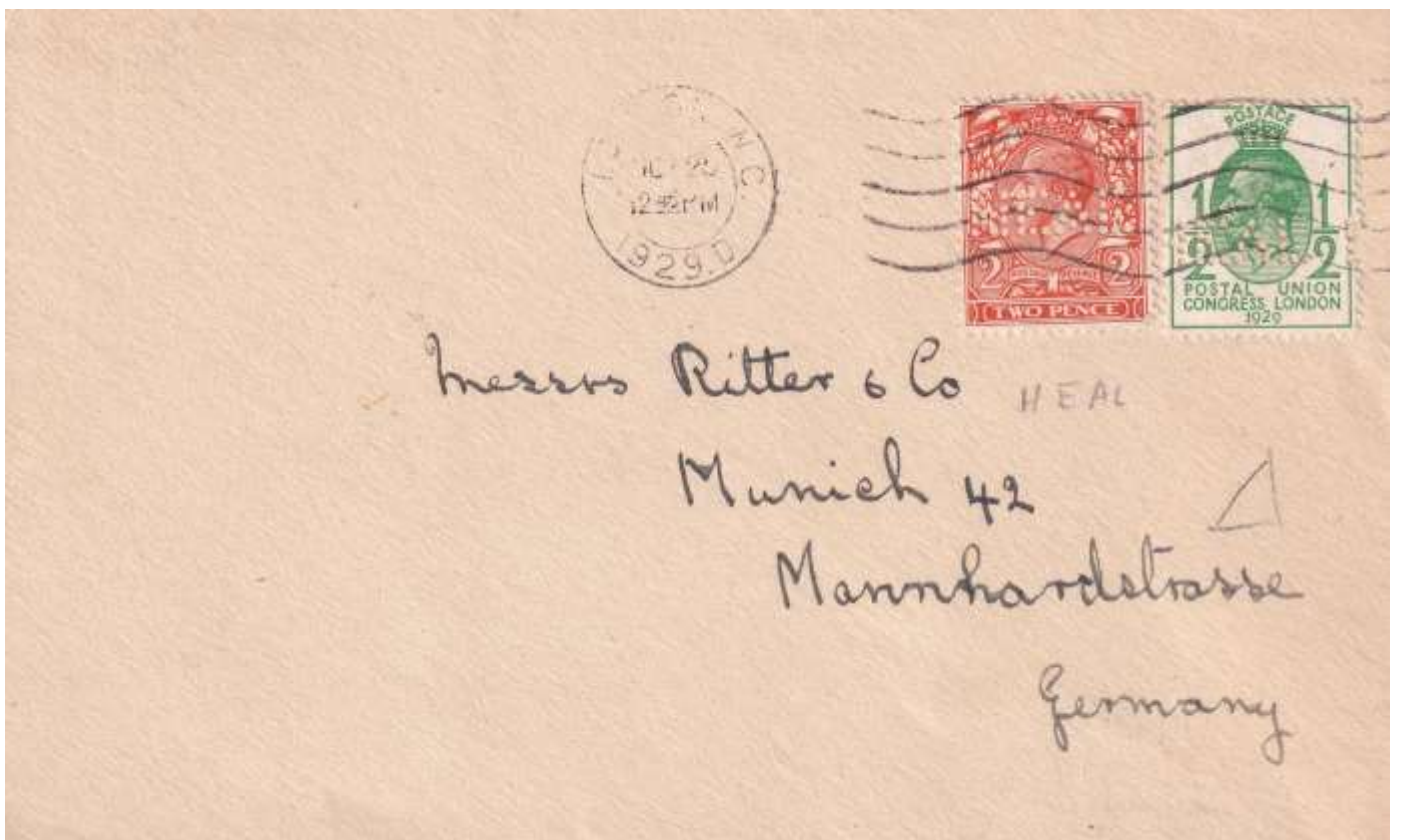 POSTAGE
N.C.
1929.D
2 2
TWO PENCE
1/2 1/2
POSTAL UNION
CONGRESS LONDON
1929
Messrs Ritter & Co
HEAL
Munich 42
Mannhardstrasse
Germany